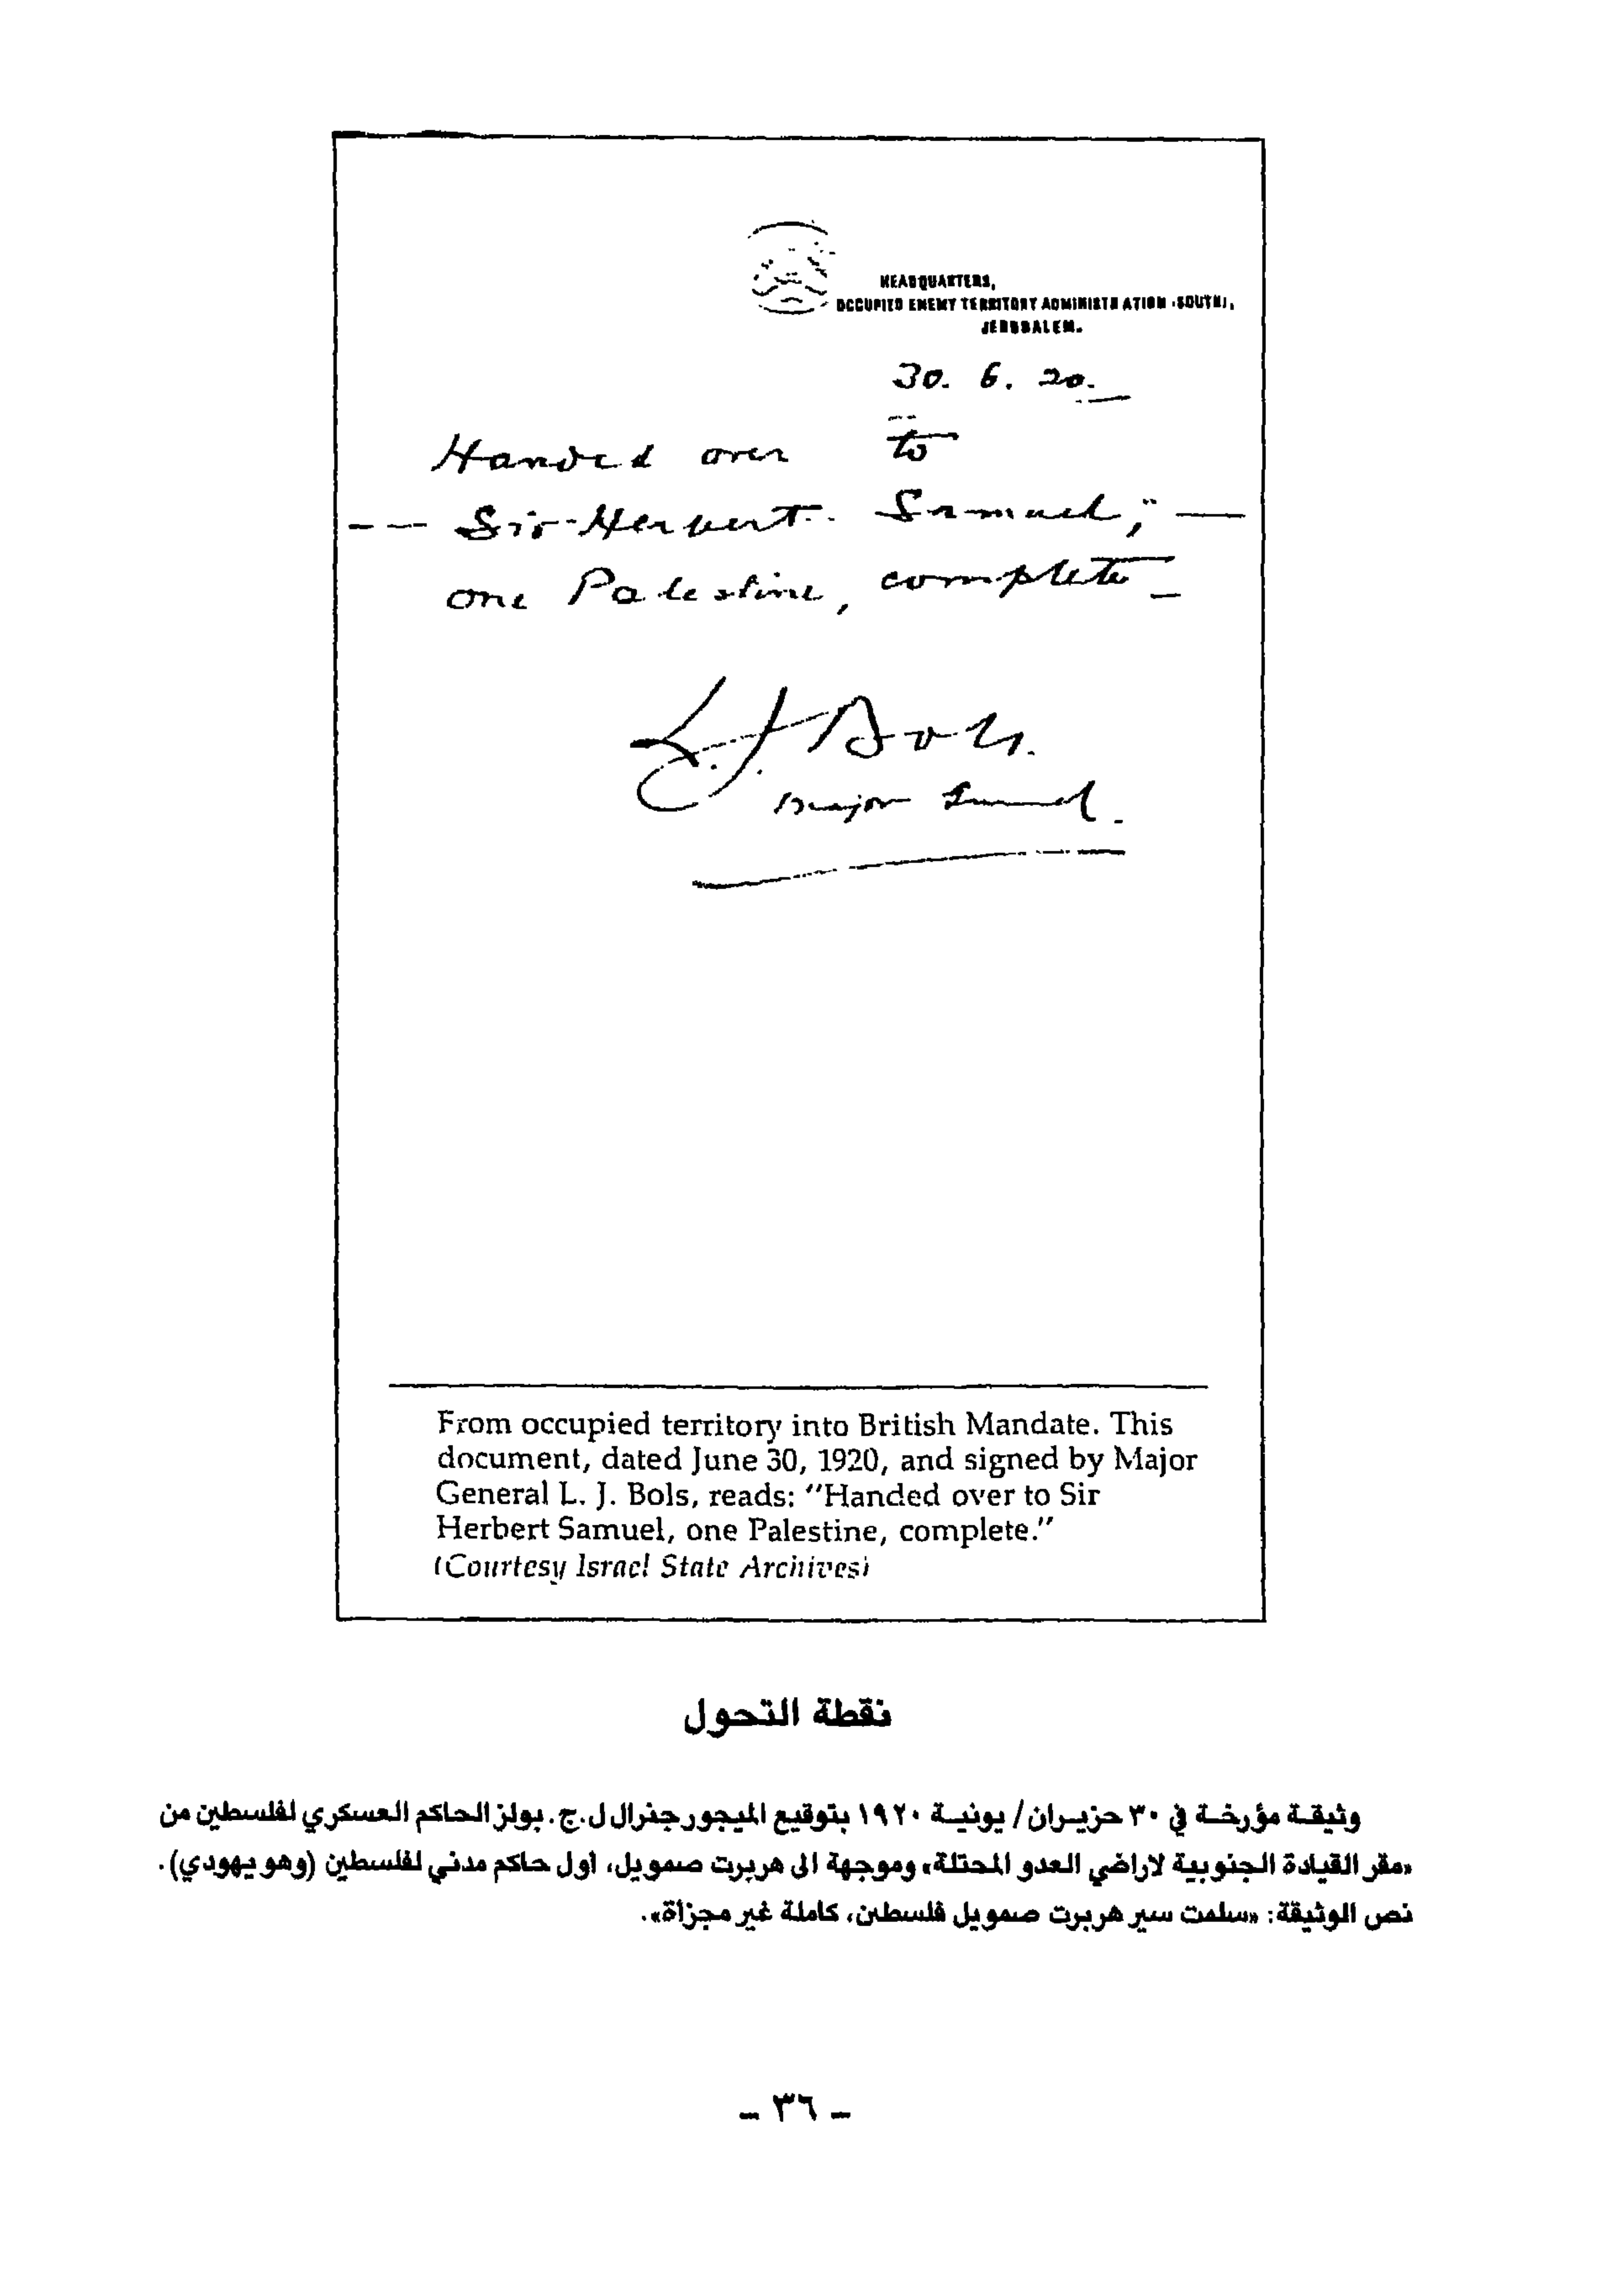 HEADQUARTERS,
OCCUPIED ENEMY TERRITORY ADMINISTRATION (SOUTH),
JERUSALEM.
30. 6. 20.
Handed over to
Sir Herbert Samuel,
one Palestine, complete
L. J. Bols.
Major General.
From occupied territory into British Mandate. This
document, dated June 30, 1920, and signed by Major
General L. J. Bols, reads: "Handed over to Sir
Herbert Samuel, one Palestine, complete."
(Courtesy Israel State Archives)
نقطة التحول
وثيقة مؤرخة في ٣٠ حزيران / يونية ١٩٢٠ بتوقيع الميجور جنرال ل.ج. بولز الحاكم العسكري لفلسطين من
«مقر القيادة الجنوبية لاراضي العدو المحتلة» وموجهة الى هربرت صمويل، أول حاكم مدني لفلسطين (وهو يهودي).
نص الوثيقة: «سلمت سير هربرت صمويل فلسطين، كاملة غير مجزأة».
- ٣٦ -